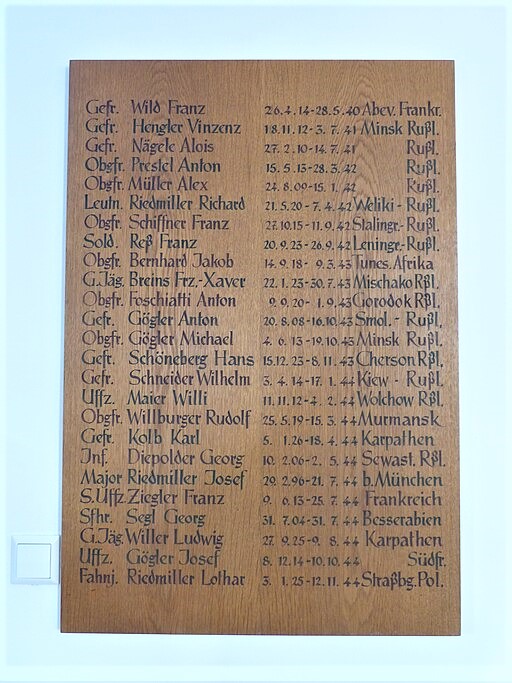 Gefr. Wild Franz 26.4.14-28.5.40 Abev. Frankr.
Gefr. Hengler Vinzenz 18.11.12-3.7.41 Minsk Rußl.
Gefr. Nägele Alois 27.2.10-14.7.41 Rußl.
Obgfr. Prestel Anton 15.5.13-28.3.42 Rußl.
Obgfr. Müller Alex 24.8.09-15.1.42 Rußl.
Leutn. Riedmiller Richard 21.5.20-7.4.42 Weliki-Rußl.
Obgfr. Schiffner Franz 27.10.15-11.9.42 Stalingr.-Rußl.
Sold. Reß Franz 20.9.23-26.9.42 Leningr.-Rußl.
Obgfr. Bernhard Jakob 14.9.18-9.3.43 Tunes. Afrika
G.Jäg. Breins Frz.-Xaver 22.1.23-30.7.43 Mischako Rßl.
Obgfr. Foschiatti Anton 9.9.20-1.9.43 Gorodok Rßl.
Gefr. Gögler Anton 20.8.08-16.10.43 Smol.-Rußl.
Obgfr. Gögler Michael 4.6.13-19.10.43 Minsk Rußl.
Gefr. Schöneberg Hans 15.12.23-8.11.43 Cherson Rßl.
Gefr. Schneider Wilhelm 3.4.14-17.1.44 Kiew-Rußl.
Uffz. Maier Willi 11.11.12-4.2.44 Wolchow Rßl.
Obgfr. Willburger Rudolf 25.5.19-15.3.44 Murmansk
Gefr. Kolb Karl 5.1.26-18.4.44 Karpathen
Inf. Diepolder Georg 10.2.06-2.5.44 Sewast. Rßl.
Major Riedmiller Josef 29.2.96-21.7.44 b. München
S.Uffz. Ziegler Franz 9.6.13-25.7.44 Frankreich
Sfhr. Segl Georg 31.7.04-31.7.44 Besserabien
G.Jäg. Willer Ludwig 27.9.25-9.8.44 Karpathen
Uffz. Gögler Josef 8.12.14-10.10.44 Südfr.
Fahnj. Riedmiller Lothar 3.1.25-12.11.44 Straßbg. Pol.